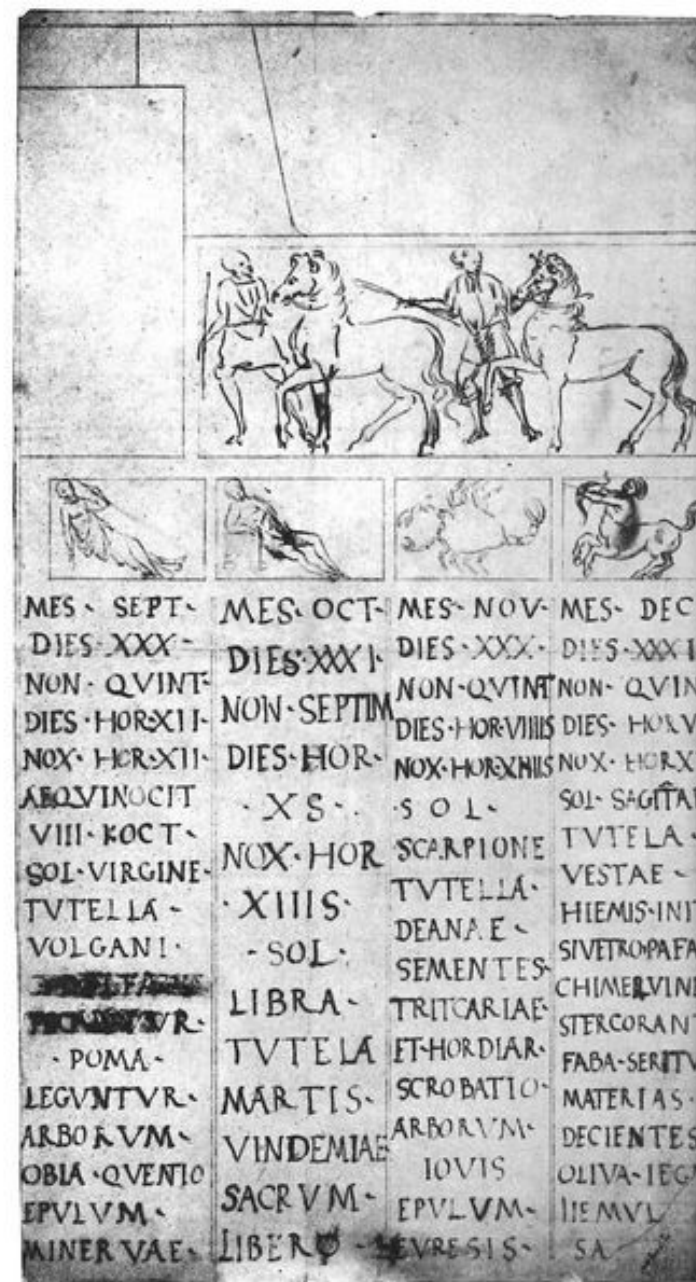 MES· SEPT·
DIES·XXX·
NON·QVINT·
DIES·HOR·XII·
NOX·HOR·XII·
AEQVINOCIT
VIII·KOCT·
SOL·VIRGINE·
TVTELLA·
VOLGANI·
·POMA·
LEGVNTVR·
ARBORVM·
OBLA·QVENTIO
EPVLVM·
MINERVAE·
MES·OCT·
DIES·XXXI·
NON·SEPTIM
DIES·HOR·
·XS·
NOX·HOR
·XIIIS·
·SOL·
LIBRA·
TVTELA
MARTIS·
VINDEMIAE
SACRVM·
LIBERO·
MES·NOV·
DIES·XXX·
NON·QVINT
DIES·HOR·VIIIIS
NOX·HOR·XIIIIS
·SOL·
SCARPIONE
TVTELLA·
DEANAE·
SEMENTES·
TRITCARIAE·
ET·HORDIAR·
SCROBATIO·
ARBORVM·
IOVIS
EPVLVM·
EVRESIS·
MES· DEC
DIES·XXXI
NON· QVIN
DIES· HOR V
NOX· HOR X
SOL· SAGITTA
TVTELA·
VESTAE·
HIEMIS·INI
STERCORAN
FABA·SERITV
MATERIAS·
DECIENTES
OLIVA·LEG
SA